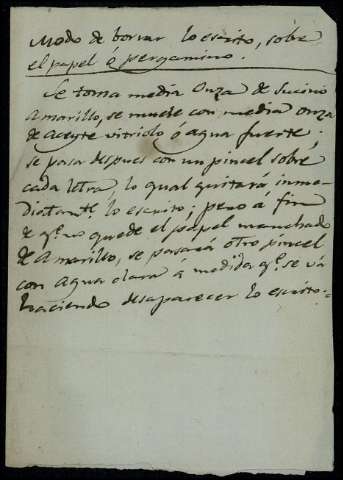 Modo de borrar lo escrito, sobre
el papel ó pergamino.
Se toma media onza de Sucino
Amarillo, se muele con media onza
de aceyte vitriolo ó agua fuerte;
se pasa despues con un pincel sobre
cada letra, lo qual quitará inme-
diatamte. lo escrito; pero a fin
de qe. no quede el papel manchado
de Amarillo, se pasará otro pincel
con Agua clara á medida qe. se vá
haciendo desaparecer lo escrito.